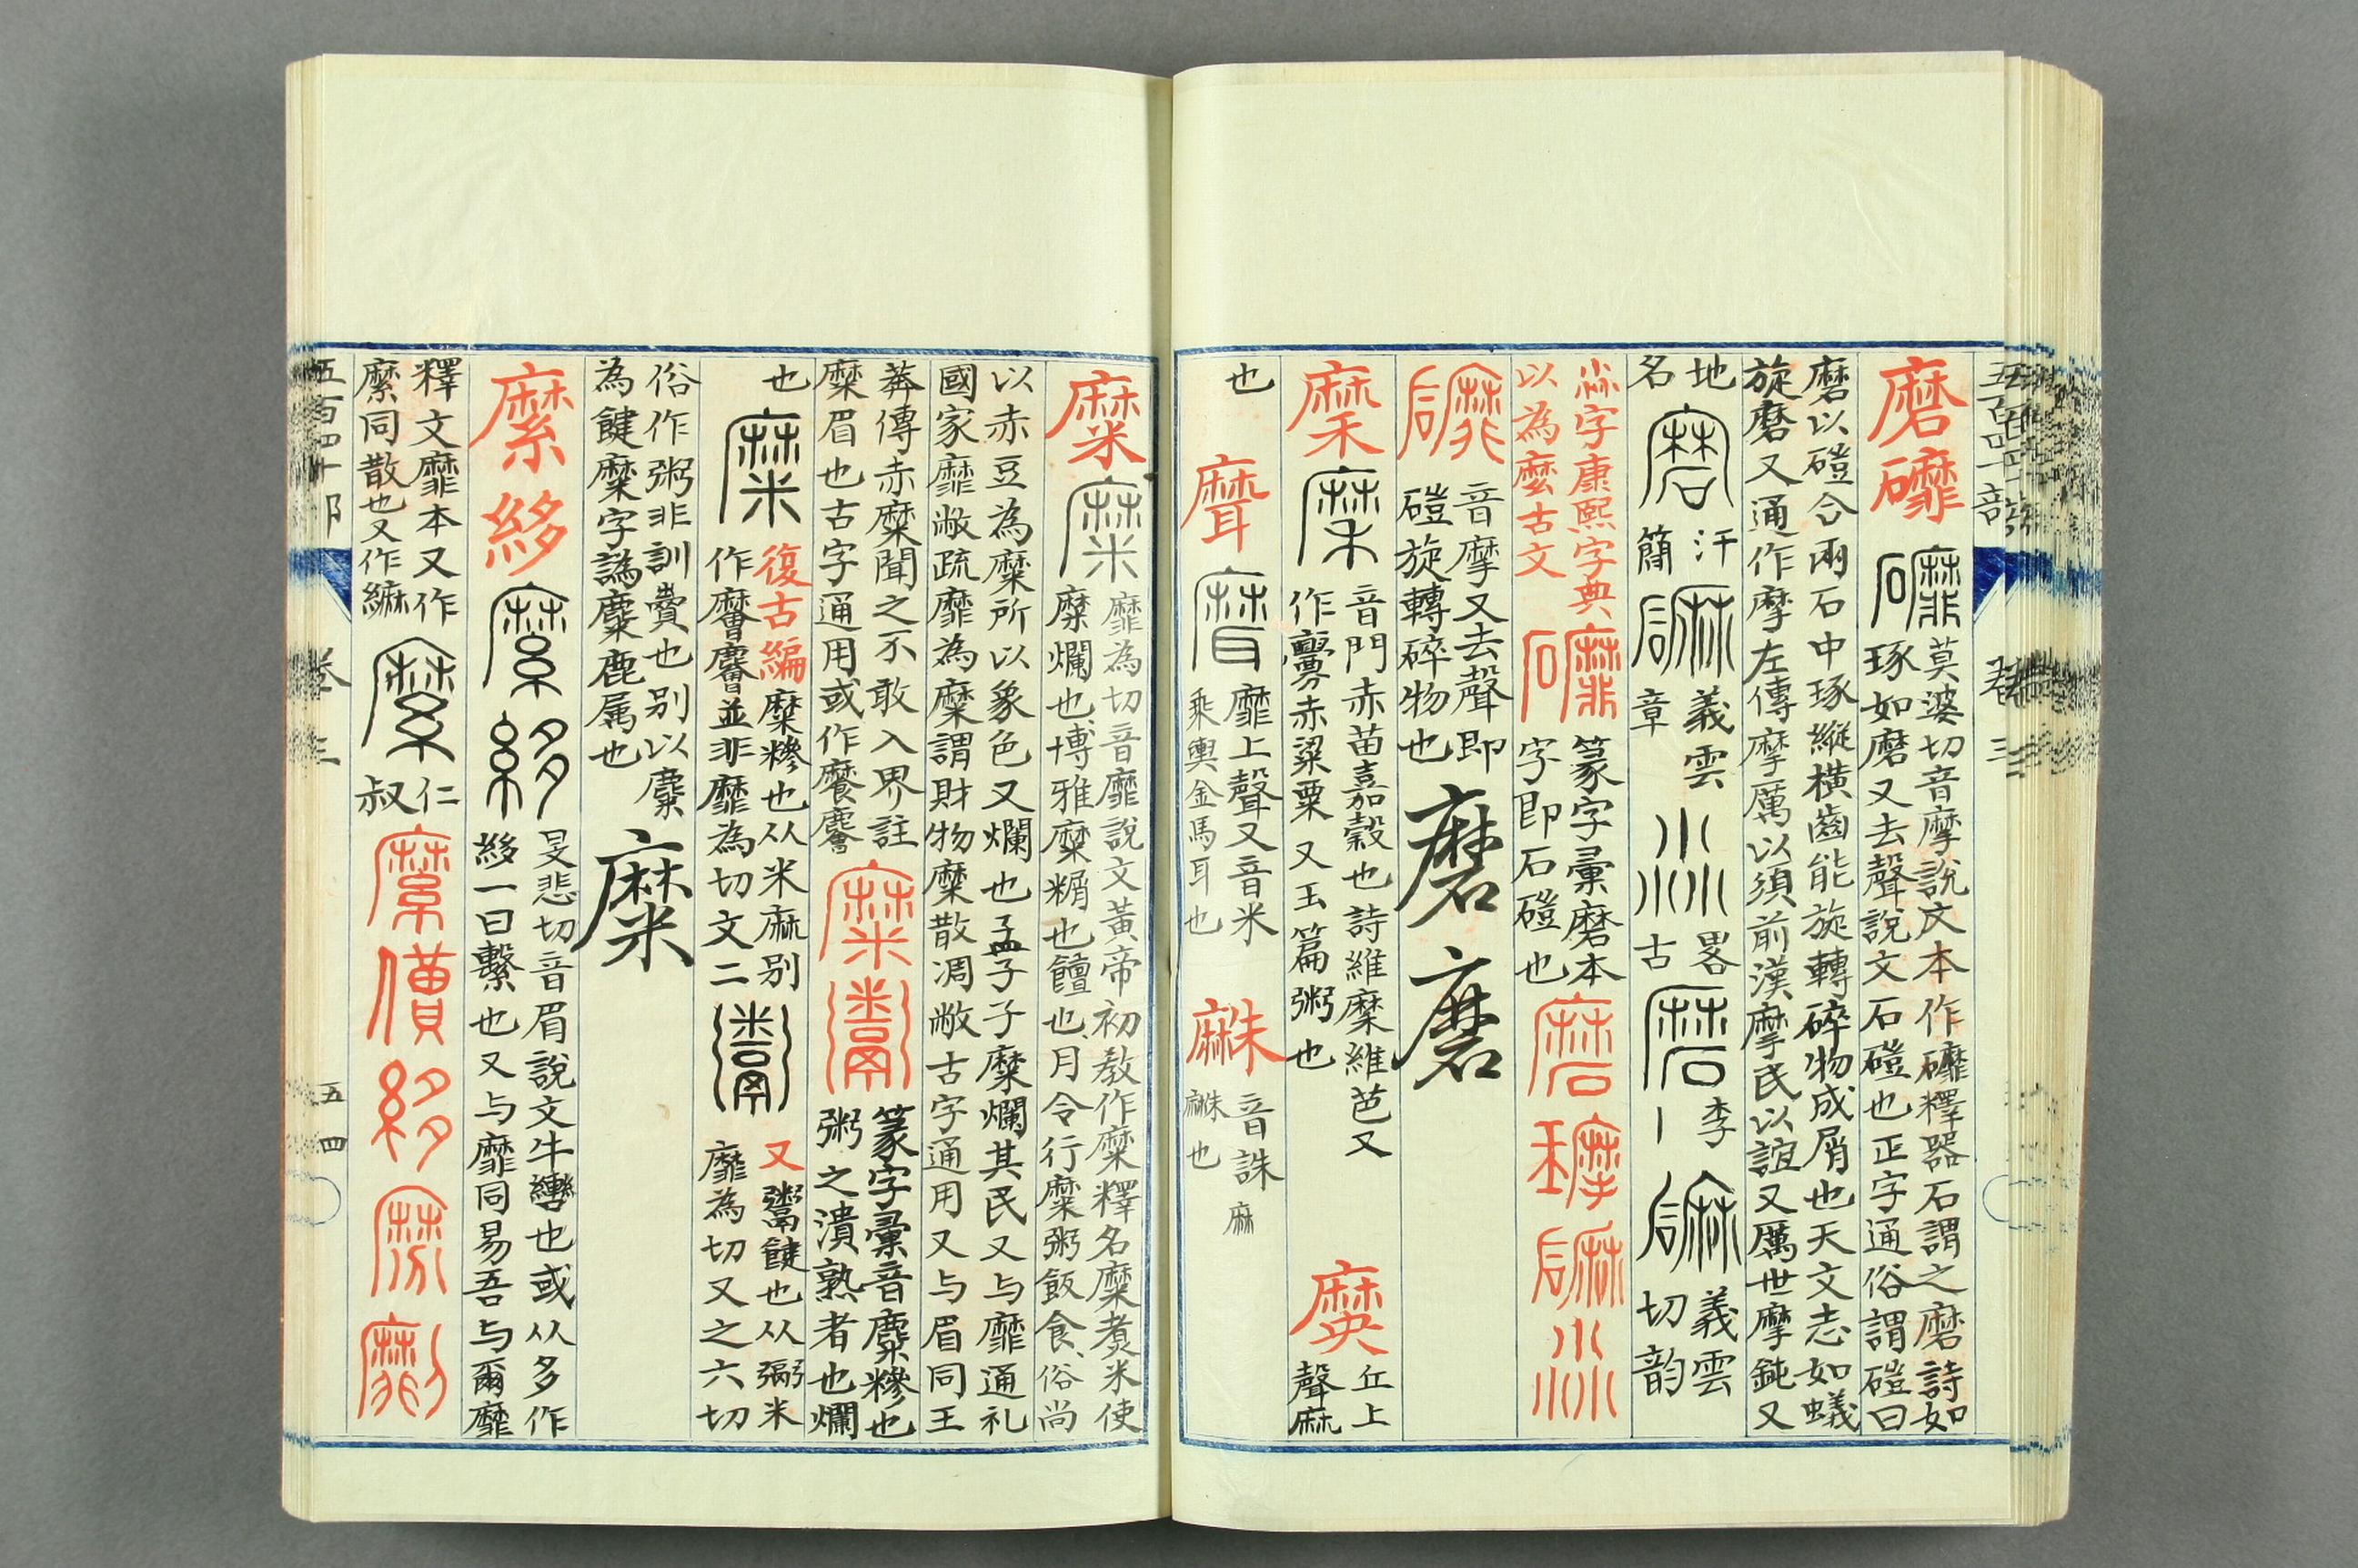 五百四十部 卷三
磨䃺 䃺 莫婆切音摩說文本作䃺釋器石謂之磨詩如
琢如磨又去聲說文石磑也正字通俗謂磑曰
磨以磑合兩石中琢縱橫齒能旋轉碎物成屑也天文志如蟻
旋磨又通作摩左傳摩厲以須前漢摩民以誼又厲世摩鈍又
地名 磨 汗簡 義雲章 畧古 磨 李丨 義雲切韵
字康熙字典
以為麼古文
䃺 篆字彙磨本
字即石磑也
磨
音摩又去聲即
磑旋轉碎物也
磨 磨
穈 穈 音門赤苗嘉穀也詩維穈維芑又
作虋赤粱粟又玉篇粥也
丘上
聲麻
也
靡上聲又音米
乘輿金馬耳也
音誅麻
也
糜 糜 靡為切音靡說文黃帝初教作糜釋名糜煑米使
糜爛也博雅糜糏也饘也月令行糜粥飯食俗尚
以赤豆為糜所以象色又爛也孟子子糜爛其民又与靡通礼
國家靡敝疏靡為糜謂財物糜散凋敝古字通用又与眉同王
莽傳赤糜聞之不敢入界註
糜眉也古字通用或作
糜 鬻 篆字彙音麋糝也
粥之潰熟者也爛
也 糜 復古編糜糝也从米麻别
作並非靡為切文二
鬻 又鬻健也从弼米
靡為切又之六切
俗作粥非訓賣也别以麋
為健糜字譌麋鹿属也
糜
縻 𦃇 縻 𦃇 旻悲切音眉說文牛轡也或从多作
𦃇一曰繫也又与靡同易吾与爾靡
釋文靡本又作
縻同散也又作
縻 仁叔 縻
五百四十部 卷三 五四